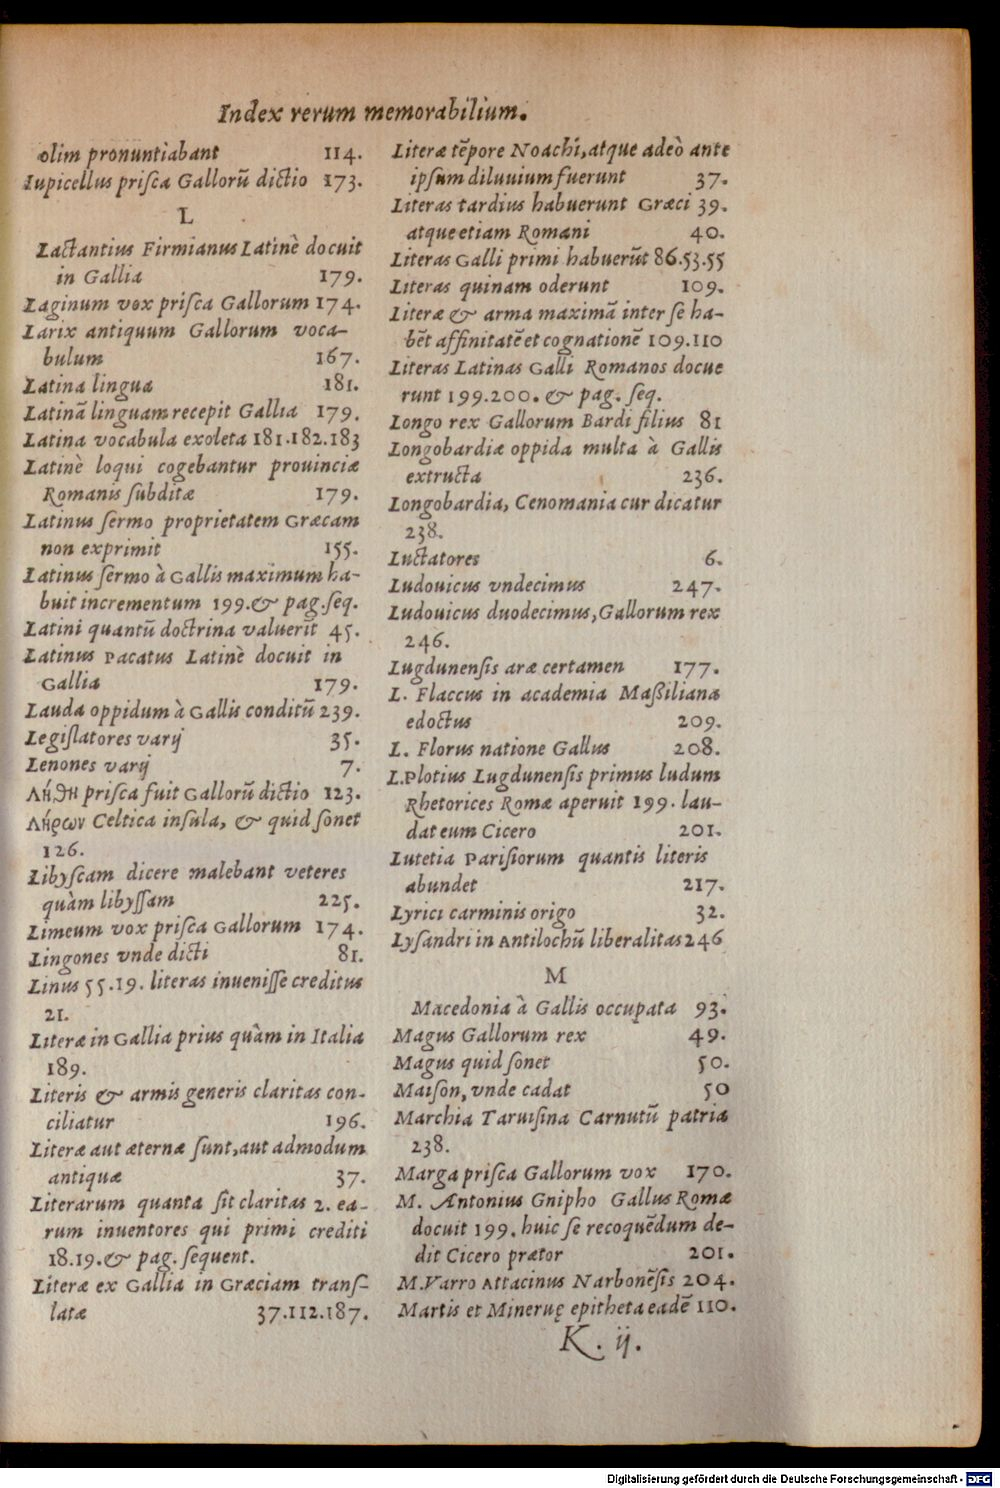 Index rerum memorabilium.
olim pronuntiabant 114.
Iupicellus prisca Gallorũ dictio 173.
L
Lactantius Firmianus Latinè docuit
in Gallia 179.
Laginum vox prisca Gallorum 174.
Larix antiquum Gallorum voca-
bulum 167.
Latina lingua 181.
Latinã linguam recepit Gallia 179.
Latina vocabula exoleta 181.182.183
Latinè loqui cogebantur prouinciæ
Romanis subditæ 179.
Latinus sermo proprietatem Græcam
non exprimit 155.
Latinus sermo à Gallis maximum ha-
buit incrementum 199.& pag.seq.
Latini quantũ doctrina valuerĩt 45.
Latinus Pacatus Latinè docuit in
Gallia 179.
Lauda oppidum à Gallis conditũ 239.
Legislatores varij 35.
Lenones varij 7.
Λήθη prisca fuit Gallorũ dictio 123.
Λήρων Celtica insula, & quid sonet
126.
Libyscam dicere malebant veteres
quàm libyssam 225.
Limeum vox prisca Gallorum 174.
Lingones vnde dicti 81.
Linus 55.19. literas inuenisse creditus
21.
Literæ in Gallia prius quàm in Italia
189.
Literis & armis generis claritas con-
ciliatur 196.
Literæ aut æternæ sunt, aut admodum
antiquæ 37.
Literarum quanta sit claritas 2. ea-
rum inuentores qui primi crediti
18.19.& pag. sequent.
Literæ ex Gallia in Græciam trans-
latæ 37.112.187.
Literæ tẽpore Noachi, atque adeò ante
ipsum diluuium fuerunt 37.
Literas tardius habuerunt Græci 39.
atque etiam Romani 40.
Literas Galli primi habuerũt 86.53.55
Literas quinam oderunt 109.
Literæ & arma maximã inter se ha-
bẽt affinitatẽ et cognationẽ 109.110
Literas Latinas Galli Romanos docue
runt 199.200. & pag. seq.
Longo rex Gallorum Bardi filius 81
Longobardiæ oppida multa à Gallis
extructa 236.
Longobardia, Cenomania cur dicatur
238.
Luctatores 6.
Ludouicus vndecimus 247.
Ludouicus duodecimus, Gallorum rex
246.
Lugdunensis aræ certamen 177.
L. Flaccus in academia Maßiliana
edoctus 209.
L. Florus natione Gallus 208.
L.Plotius Lugdunensis primus ludum
Rhetorices Romæ aperuit 199. lau-
dat eum Cicero 201.
Lutetia Parisiorum quantis literis
abundet 217.
Lyrici carminis origo 32.
Lysandri in Antilochũ liberalitas 246
M
Macedonia à Gallis occupata 93.
Magus Gallorum rex 49.
Magus quid sonet 50.
Maison, vnde cadat 50
Marchia Taruisina Carnutũ patria
238.
Marga prisca Gallorum vox 170.
M. Antonius Gnipho Gallus Romæ
docuit 199. huic se recoquẽdum de-
dit Cicero prætor 201.
M.Varro Attacinus Narbonẽsis 204.
Martis et Mineruę epitheta eadẽ 110.
K. ij.
Digitalisierung gefördert durch die Deutsche Forschungsgemeinschaft - DFG